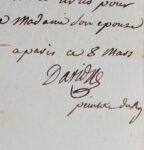 pour
a Madame son epouse
a paris ce 8 Mars
David
peintre du Roy